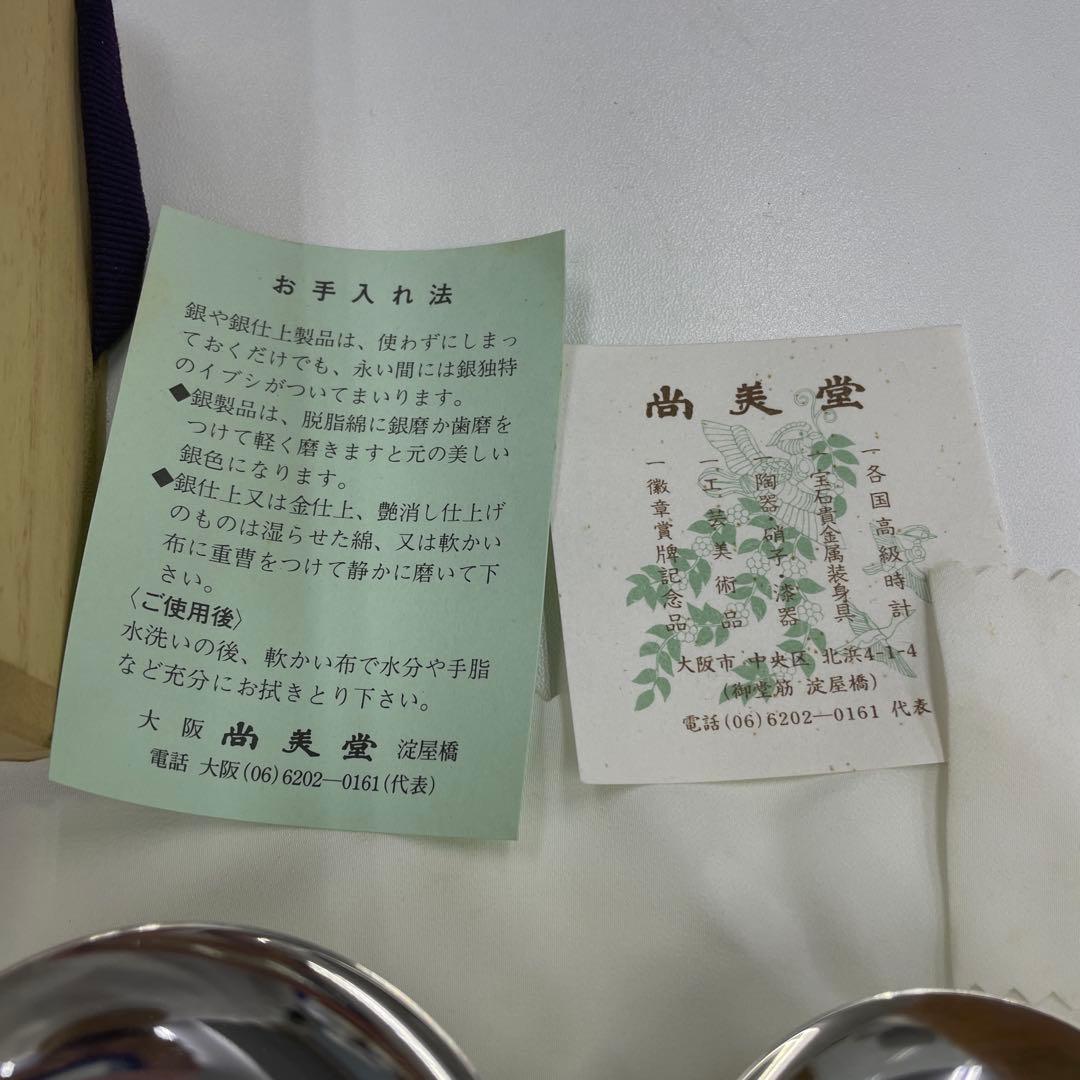 お手入れ法
銀や銀仕上製品は、使わずにしまっ
ておくだけでも、永い間には銀独特
のイブシがついてまいります。
◆銀製品は、脱脂綿に銀磨か歯磨を
つけて軽く磨きますと元の美しい
銀色になります。
◆銀仕上又は金仕上、艶消し仕上げ
のものは湿らせた綿、又は軟かい
布に重曹をつけて静かに磨いて下
さい。
〈ご使用後〉
水洗いの後、軟かい布で水分や手脂
など充分にお拭きとり下さい。
大阪 尚美堂 淀屋橋
電話 大阪(06)6202―0161(代表)
尚美堂
一各国高級時計
一宝石貴金属装身具
一陶器・硝子・漆器
一工芸美術品
一徽章賞牌記念品
大阪市 中央区 北浜4-1-4
(御堂筋 淀屋橋)
電話(06)6202―0161 代表